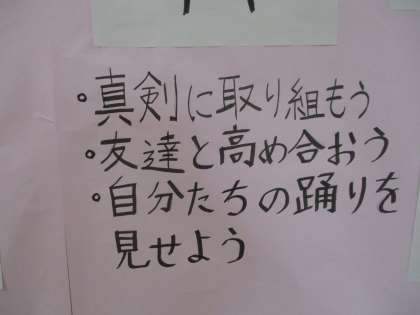 ・真剣に取り組もう
・友達と高め合おう
・自分たちの踊りを
見せよう